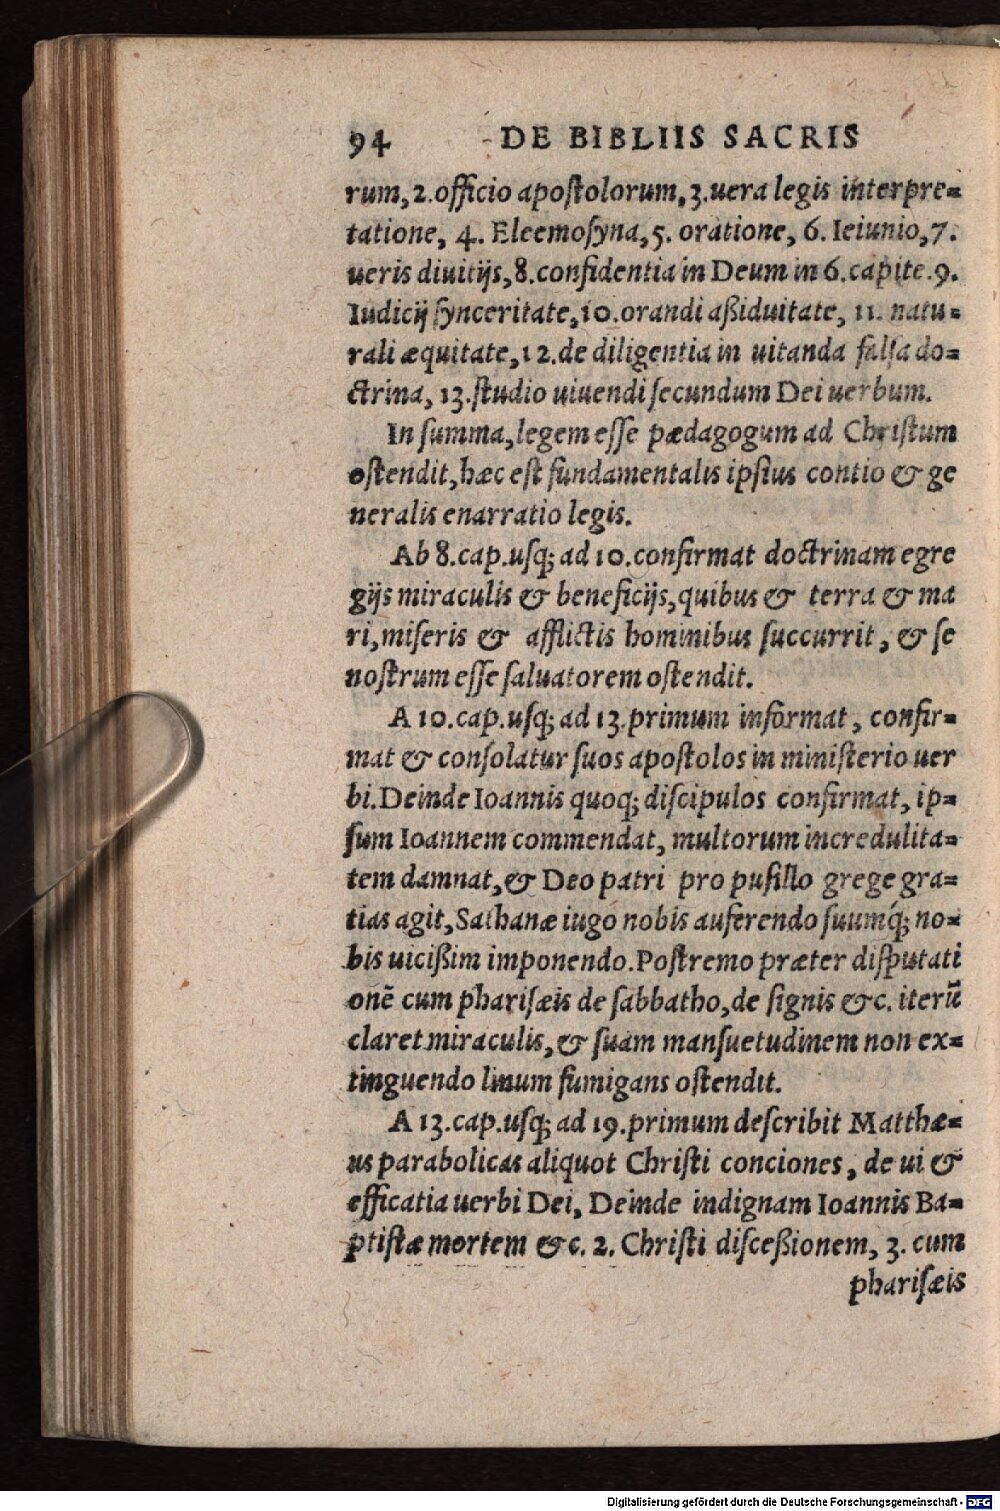 94 DE BIBLIIS SACRIS
rum, 2. officio apostolorum, 3. uera legis interpre=
tatione, 4. Eleemosyna, 5. oratione, 6. Ieiunio, 7.
ueris diuitijs, 8. confidentia in Deum in 6. capite. 9.
Iudicij synceritate, 10. orandi aßiduitate, 11. natu=
rali æquitate, 12. de diligentia in uitanda falsa do=
ctrina, 13. studio uiuendi secundum Dei uerbum.
In summa, legem esse pædagogum ad Christum
ostendit, hæc est fundamentalis ipsius contio & ge
neralis enarratio legis.
Ab 8. cap. usq; ad 10. confirmat doctrinam egre
gijs miraculis & beneficijs, quibus & terra & ma
ri, miseris & afflictis hominibus succurrit, & se
nostrum esse saluatorem ostendit.
A 10. cap. usq; ad 13. primum informat, confir=
mat & consolatur suos apostolos in ministerio uer
bi. Deinde Ioannis quoq; discipulos confirmat, ip=
sum Ioannem commendat, multorum incredulita=
tem damnat, & Deo patri pro pusillo grege gra=
tias agit, Sathanæ iugo nobis auferendo suumq́; no=
bis uicißim imponendo. Postremo præter disputati
onē cum pharisæis de sabbatho, de signis &c. iterū
claret miraculis, & suam mansuetudinem non ex=
tinguendo linum fumigans ostendit.
A 13. cap. usq; ad 19. primum describit Matthæ=
us parabolicas aliquot Christi conciones, de ui &
efficatia uerbi Dei, Deinde indignam Ioannis Ba=
ptistæ mortem &c. 2. Christi disceßionem, 3. cum
pharisæis
Digitalisierung gefördert durch die Deutsche Forschungsgemeinschaft - DFG